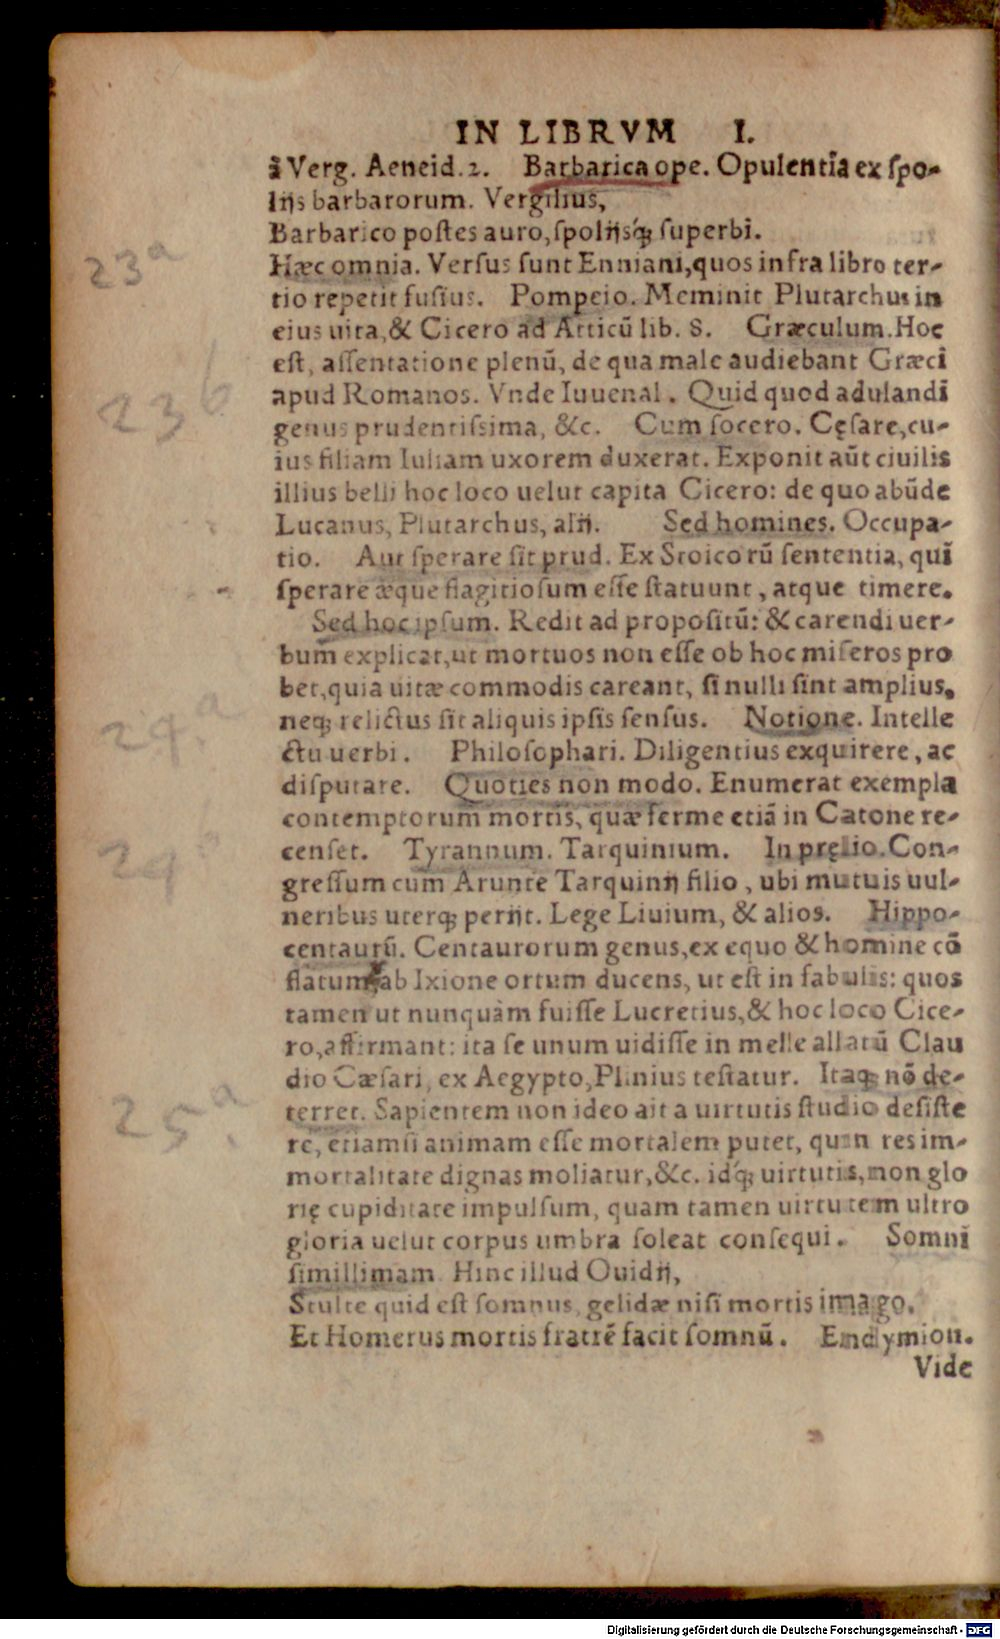 IN LIBRVM I.
ã Verg. Aeneid. 2. Barbarica ope. Opulentia ex ſpo-
lijs barbarorum. Vergilius,
Barbarico poſtes auro, ſpolijsq́ꝫ ſuperbi.
23a
Hæc omnia. Verſus ſunt Enniani, quos infra libro ter-
tio repetit fuſius. Pompeio. Meminit Plutarchus in
eius uita, & Cicero ad Atticũ lib. 8. Græculum. Hoc
eſt, aſſentatione plenũ, de qua male audiebant Græci
23b
apud Romanos. Vnde Iuuenal. Quid quod adulandi
genus prudentiſsima, &c. Cum ſocero. Cęſare, cu-
ius filiam Iuliam uxorem duxerat. Exponit aũt ciuilis
illius belli hoc loco uelut capita Cicero: de quo abũde
Lucanus, Plutarchus, alij. Sed homines. Occupa-
tio. Aut ſperare ſit prud. Ex Stoicorũ ſententia, qui
ſperare æque flagitioſum eſſe ſtatuunt, atque timere.
Sed hoc ipſum. Redit ad propoſitũ: & carendi uer-
bum explicat, ut mortuos non eſſe ob hoc miſeros pro
bet, quia uitæ commodis careant, ſi nulli ſint amplius,
24a
neqꝫ relictus ſit aliquis ipſis ſenſus. Notione. Intelle
ctu uerbi. Philoſophari. Diligentius exquirere, ac
diſputare. Quoties non modo. Enumerat exempla
contemptorum mortis, quæ ferme etiã in Catone re-
24
cenſet. Tyrannum. Tarquinium. In pręlio. Con-
greſſum cum Arunte Tarquinij filio, ubi mutuis uul-
neribus uterqꝫ perijt. Lege Liuium, & alios. Hippo-
centaurũ. Centaurorum genus, ex equo & homine cõ
flatum, ab Ixione ortum ducens, ut eſt in fabulis: quos
tamen ut nunquàm fuiſſe Lucretius, & hoc loco Cice-
ro, affirmant: ita ſe unum uidiſſe in melle allatũ Clau
dio Cæſari, ex Aegypto, Plinius teſtatur. Itaqꝫ nõ de-
25a
terret. Sapientem non ideo ait a uirtutis ſtudio deſiſte
re, etiamſi animam eſſe mortalem putet, quin res im-
mortalitate dignas moliatur, &c. idq́ꝫ uirtutis, non glo
rię cupiditate impulſum, quam tamen uirtutem ultro
gloria uelut corpus umbra ſoleat conſequi. Somni
ſimillimam. Hinc illud Ouidij,
Stulte quid eſt ſomnus, gelidæ niſi mortis imago.
Et Homerus mortis fratrẽ facit ſomnũ. Endymion.
Vide
Digitalisierung gefördert durch die Deutsche Forschungsgemeinschaft - DFG